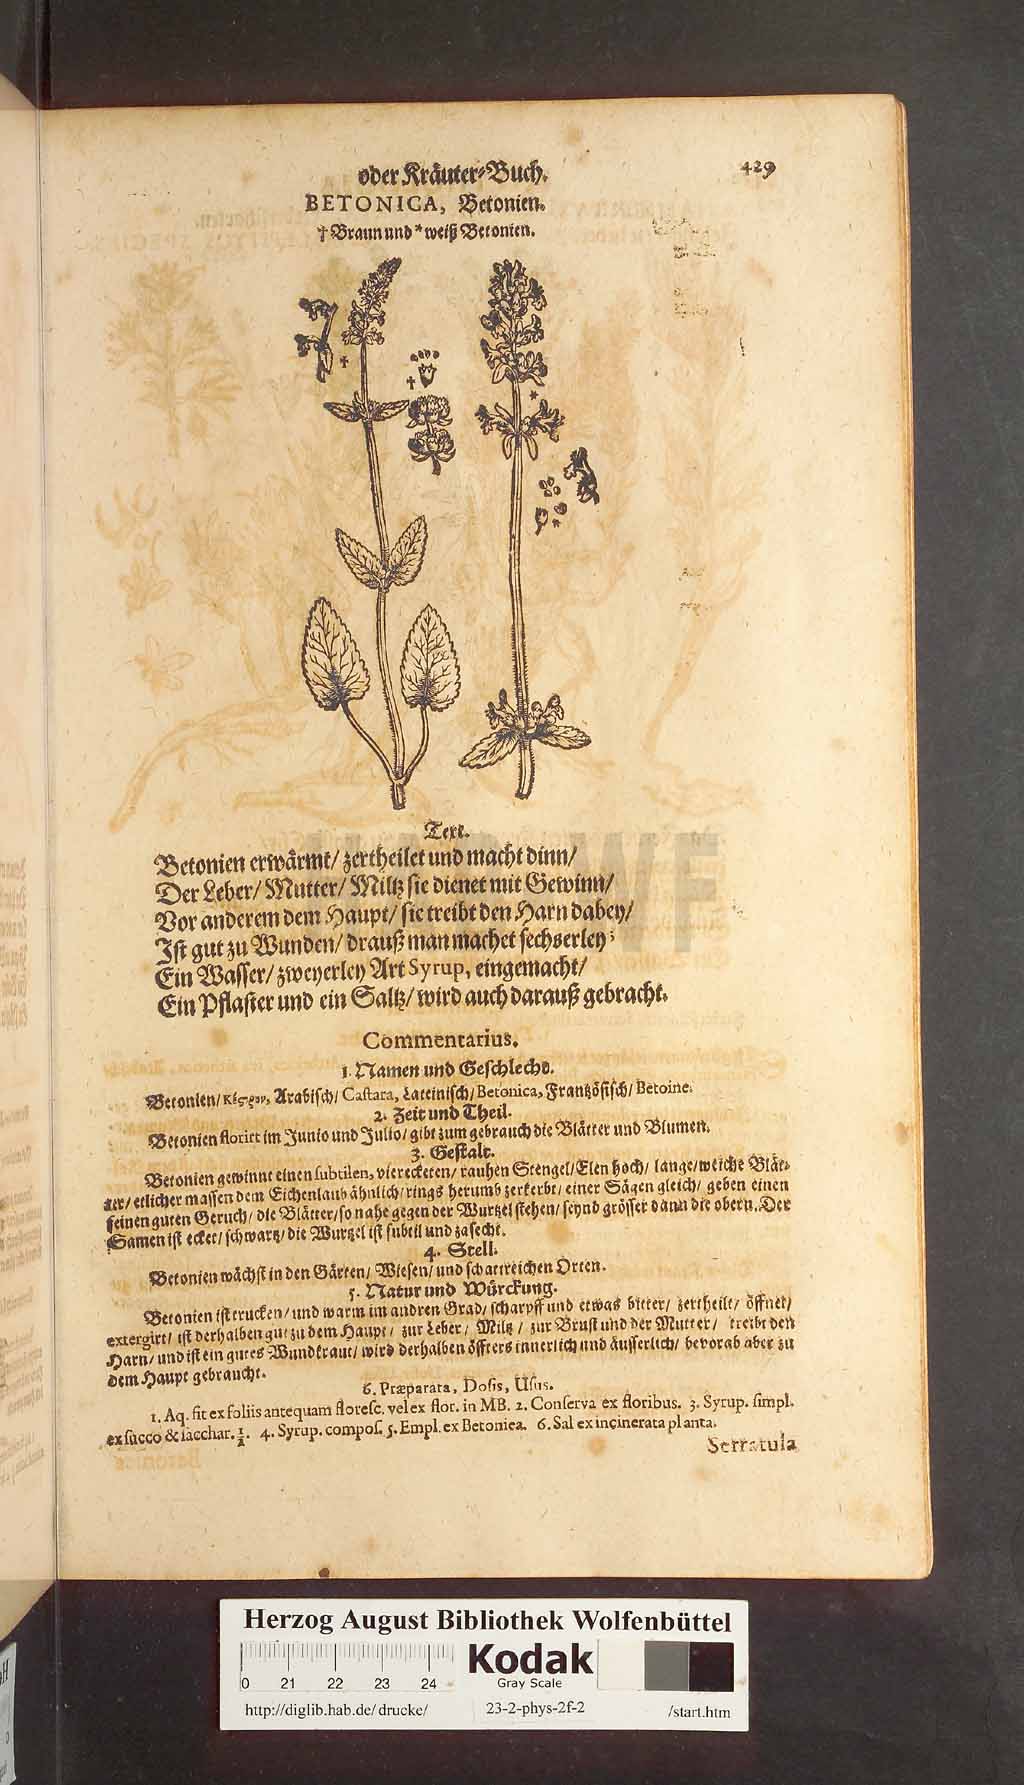 oder Kräuter-Buch. 429
BETONICA, Betonien.
† Braun und * weiß Betonien.
Text.
Betonien erwärmt/ zertheilet und macht dinn/
Der Leber/ Mutter/ Miltz sie dienet mit Gewinn/
Vor anderem dem Haupt/ sie treibt den Harn dabey/
Ist gut zu Wunden/ drauß man machet sechserley;
Ein Wasser/ zweyerley Art Syrup, eingemacht/
Ein Pflaster und ein Saltz/ wird auch darauß gebracht.
Commentarius.
1. Namen und Geschlecht.
Betonien/ Κέςρον, Arabisch/ Castara, Lateinisch/ Betonica, Frantzösisch/ Betoine.
2. Zeit und Theil.
Betonien florirt im Junio und Julio/ gibt zum gebrauch die Blätter und Blumen.
3. Gestalt.
Betonien gewinnt einen subtilen, vierecketen/ rauhen Stengel/ Elen hoch/ lange/ weiche Blät-
ter/ etlicher massen dem Eichenlaub ähnlich/ rings herumb zerkerbt/ einer Sägen gleich/ geben einen
feinen guten Geruch/ die Blätter/ so nahe gegen der Wurtzel stehen/ seynd grösser dann die obern. Der
Samen ist ecket/ schwartz/ die Wurtzel ist subtil und zasecht.
4. Stell.
Betonien wächst in den Gärten/ Wiesen/ und schattreichen Orten.
5. Natur und Würckung.
Betonien ist trucken/ und warm im andren Grad/ scharpff und etwas bitter/ zertheilt/ öffnet/
extergirt/ ist derhalben gut zu dem Haupt/ zur Leber/ Miltz/ zur Brust und der Mutter/ treibt den
Harn/ und ist ein gutes Wundkraut/ wird derhalben öffters innerlich und äusserlich/ bevorab aber zu
dem Haupt gebraucht.
6. Præparata, Dosis, Usus.
1. Aq. fit ex foliis antequam floresc. vel ex flor. in MB. 2. Conserva ex floribus. 3. Syrup. simpl.
ex succo & sacchar. ½. 4. Syrup. compos. 5. Empl. ex Betonica. 6. Sal ex incinerata planta.
Serratula
Herzog August Bibliothek Wolfenbüttel
0 21 22 23 24
Kodak
Gray Scale
http://diglib.hab.de/drucke/ 23-2-phys-2f-2 /start.htm